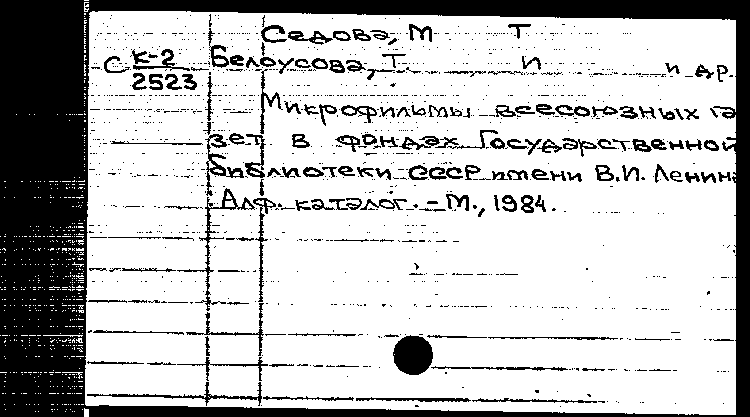 Седова, М Т
С К-2 Белоусова, Т. И и др.
2523
Микрофильмы всесоюзных га
зет в фондах Государственной
библиотеки СССР имени В.И. Ленина
: Алф. каталог. – М., 1984.